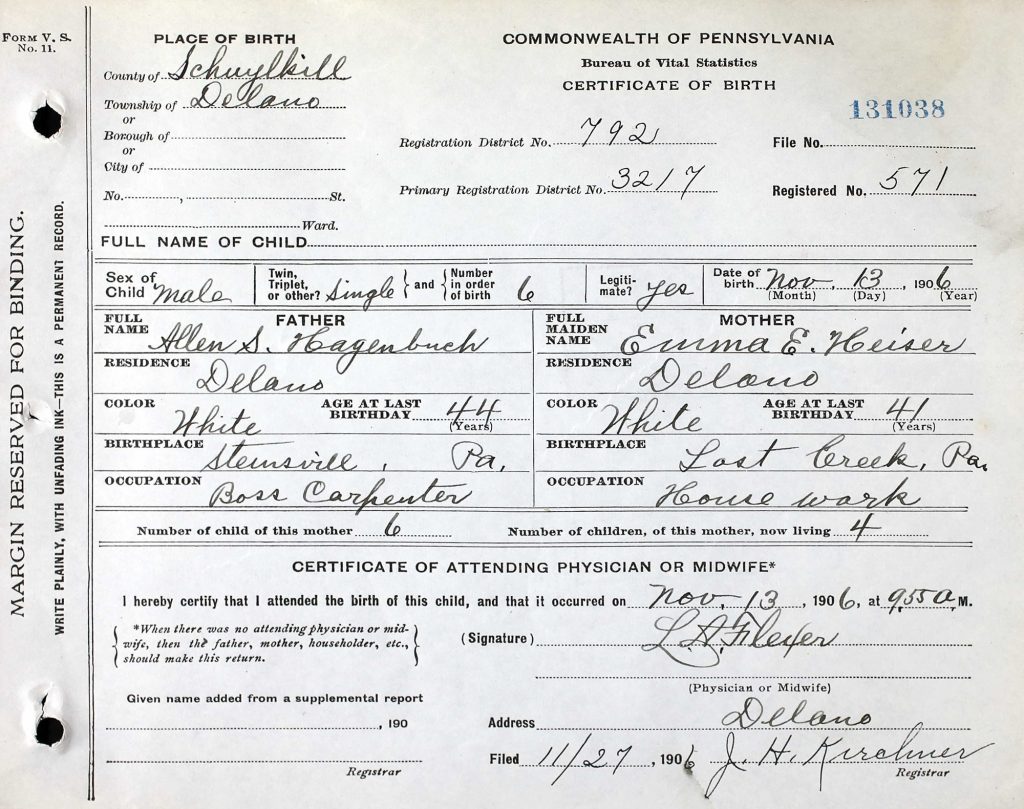 FORM V. S.
No. 11.
MARGIN RESERVED FOR BINDING.
WRITE PLAINLY, WITH UNFADING INK—THIS IS A PERMANENT RECORD.
PLACE OF BIRTH
County of Schuylkill
Township of Delano
or
Borough of
or
City of
No. , St.
Ward.
COMMONWEALTH OF PENNSYLVANIA
Bureau of Vital Statistics
CERTIFICATE OF BIRTH
131038
Registration District No. 792
File No.
Primary Registration District No. 3217
Registered No. 571
FULL NAME OF CHILD
Sex of Child Male
Twin, Triplet, or other? Single and Number in order of birth 6
Legitimate? Yes
Date of birth Nov, 13, 1906
(Month) (Day) (Year)
FATHER
FULL NAME Allen S. Hagenbuch
RESIDENCE Delano
COLOR White AGE AT LAST BIRTHDAY 44
(Years)
BIRTHPLACE Steinsvill, Pa,
OCCUPATION Boss Carpenter
MOTHER
FULL MAIDEN NAME Emma E. Heiser
RESIDENCE Delano
COLOR White AGE AT LAST BIRTHDAY 41
(Years)
BIRTHPLACE Lost Creek, Pa,
OCCUPATION House work
Number of child of this mother 6 Number of children, of this mother, now living 4
CERTIFICATE OF ATTENDING PHYSICIAN OR MIDWIFE*
I hereby certify that I attended the birth of this child, and that it occurred on Nov, 13, 1906, at 9.55 a, M.
*When there was no attending physician or mid-
wife, then the father, mother, householder, etc.,
should make this return.
(Signature) L. A. Flexer
(Physician or Midwife)
Given name added from a supplemental report
, 190
Registrar
Address Delano
Filed 11/27, 1906 J. H. Kirchner
Registrar